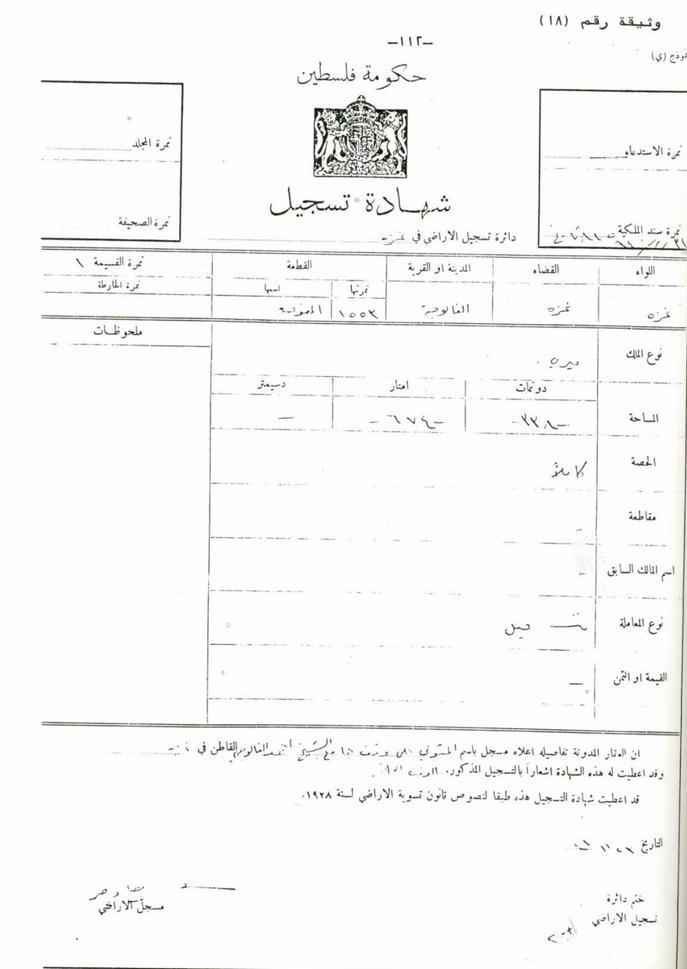 وثيقة رقم (١٨)
-١١٢-
نموذج (ي)
حكومة فلسطين
نمرة الاستدعاء
نمرة المجلد
شهادة تسجيل
نمرة سند الملكية
نمرة الصحيفة
دائرة تسجيل الاراضي في غزه
اللواء القضاء المدينة او القرية القطعة نمرة القسيمة ١
نمرتها اسمها نمرة الخارطة
غزه غزه الفالوجة ١٥٥٣
نوع الملك ميري ملحوظات
دونمات امتار دسيمتر
المساحة -٣٣٨- -٦٧٤- —
الحصة كاملاً
مقاطعة -
اسم المالك السابق -
نوع المعاملة
القيمة او الثمن —
ان العقار المدونة تفاصيله اعلاه مسجل باسم المتولي على وقف جامع الشيخ احمد الفالوجي القاطن في
وقد اعطيت له هذه الشهادة اشعاراً بالتسجيل المذكور.
قد اعطيت شهادة التسجيل هذه طبقا لنصوص قانون تسوية الاراضي لسنة ١٩٢٨.
التاريخ
ختم دائرة
تسجيل الاراضي
مسجل الاراضي